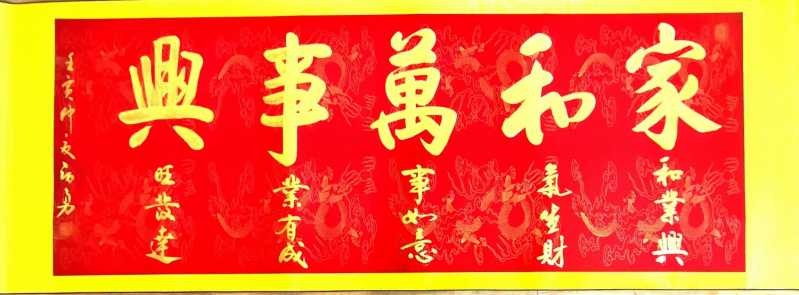 家和萬事興
和業興
氣生財
事如意
業有成
旺發達
壬寅